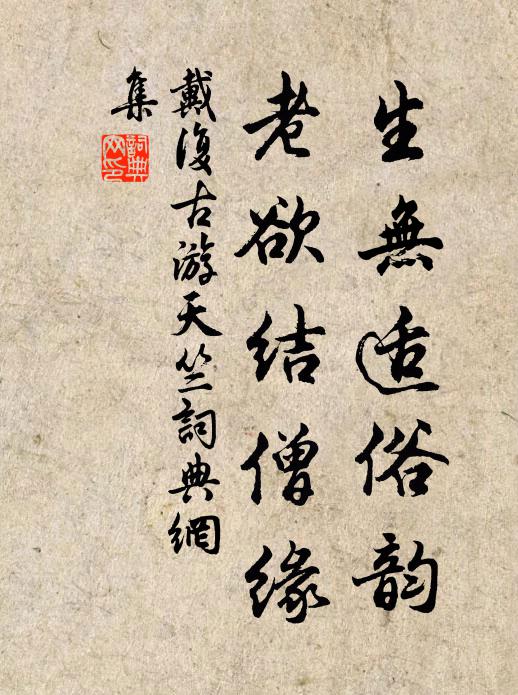 生無适俗韵
老欲结僧缘
戴復古游天竺詞典網
集
詞典
网印